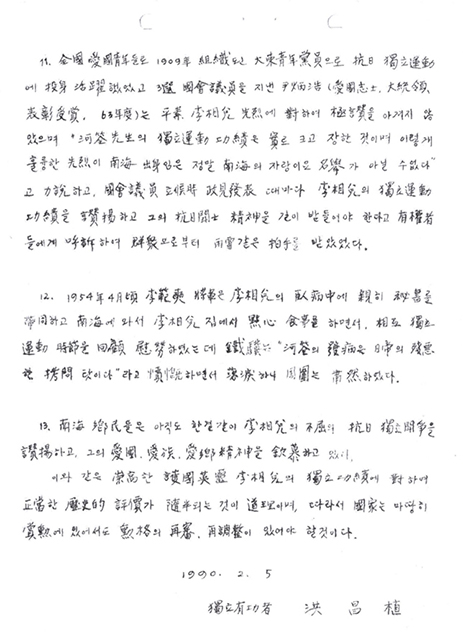 11. 全國 愛國青年들로 1909年 組織된 大東青年黨員으로 抗日 獨立運動
에 投身 活躍했었고 3選 國會議員을 지낸 尹炳浩 (愛國志士. 大統領
表彰受賞. 63年度)는 平素 李相允 先烈에 對하여 極讚을 아끼지 않
았으며 "河谷先生의 獨立運動 功績은 實로 크고 장한 것이며 이렇게
훌륭한 先烈이 南海 出身임은 정말 南海의 자랑이요 名譽가 아닐 수없다"
고 力說하고. 國會議員 立候時 政見發表 때마다 李相允의 獨立運動
功績을 讚揚하고 그의 抗日鬪士 精神을 길이 받들어야 한다고 有權者
들에게 呼訴하여 群衆으로부터 雨雷같은 拍手를 받았었다.
12. 1954年4月頃 李範奭 將軍은 李相允의 臥病中에 親히 秘書를
帶同하고 南海에 와서 李相允 집에서 點心 食事를 하면서. 相互 獨立
運動 時節을 回顧 慰勞하였는데 鐵驥는 "河谷의 發病은 日帝의
한 拷問 탓이다"라고 하면서 落淚하니 周圍는 肅然하였다.
13. 南海 鄕民들은 아직도 한결같이 李相允의 不屈의 抗日 獨立鬪爭을
讚揚하고. 그의 愛國. 愛族. 愛鄕精神을 欽慕하고 있다.
이와 같은 崇高한 護國英靈 李相允의 獨立功績에 對하여
正當한 歷史的 評價가 隨半되는 것이 道理이며. 따라서 國家는 마땅히
賞勲에 있어서도 勲格의 再審. 再調整이 있어야 할것이다.
1990. 2. 5
獨立有功者 洪昌植